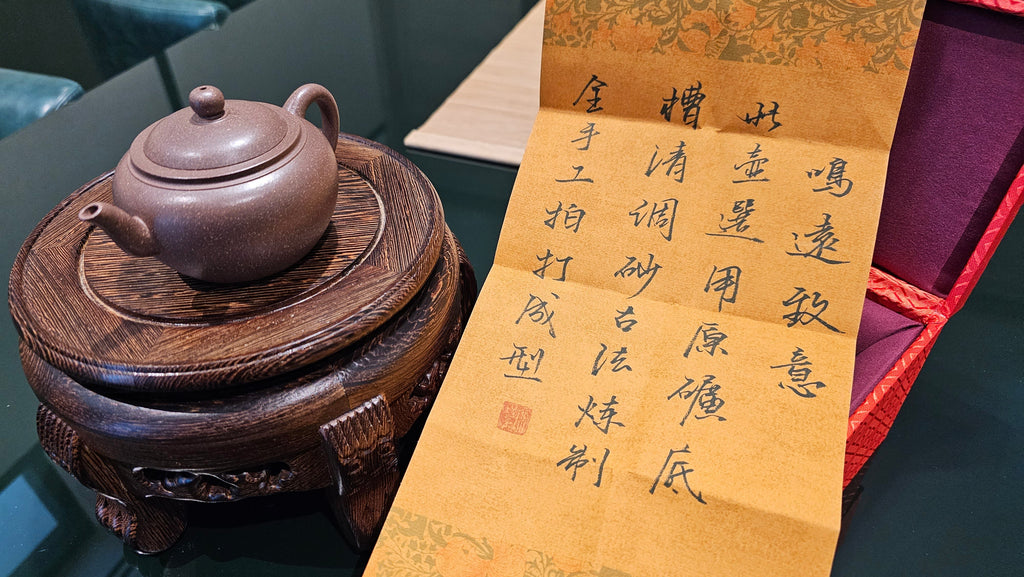 鳴遠致意
此壶選用原礦底
槽清调砂古法炼制
全手工拍打成型